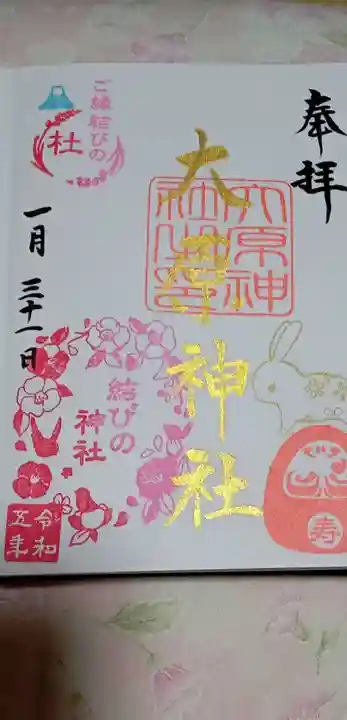 奉拝
大原神社
大原神
社之印
寿
ご縁結びの
杜
一月三十一日
結びの
神社
令和
五年